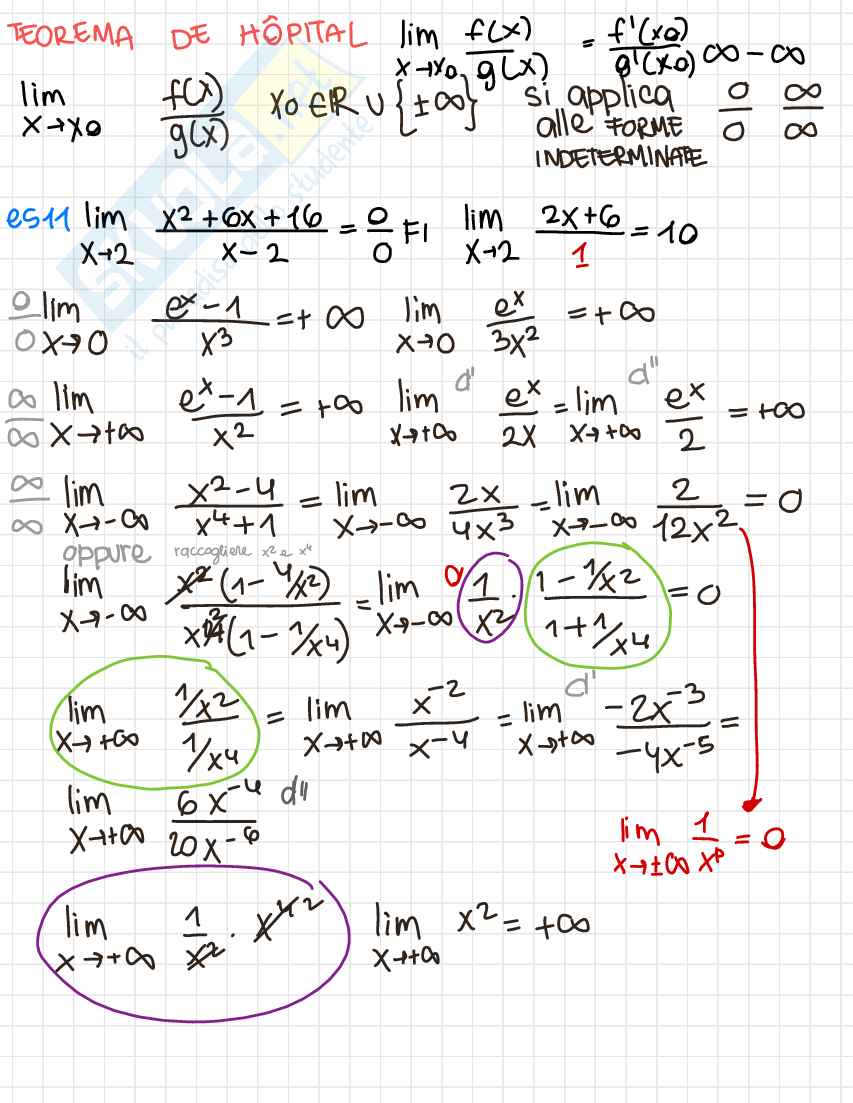 TEOREMA DE HÔPITAL lim x→x0 f(x)/g(x) = f'(x0)/g'(x0) ∞ - ∞
lim x→x0 f(x)/g(x) x0 ∈ ℝ ∪ {±∞} si applica alle FORME INDETERMINATE 0/0 ∞/∞
es11 lim x→2 x²+6x+16/x-2 = 0/0 FI lim x→2 2x+6/1 = 10
0/0 lim x→0 eˣ-1/x³ = +∞ lim x→0 eˣ/3x² = +∞
∞/∞ lim x→+∞ eˣ-1/x² = +∞ lim x→+∞ d' eˣ/2x = lim x→+∞ d'' eˣ/2 = +∞
∞/∞ lim x→-∞ x²-4/x⁴+1 = lim x→-∞ 2x/4x³ = lim x→-∞ 2/12x² = 0
oppure raccogliere x² e x⁴
lim x→-∞ x²(1-4/x²)/x⁴²(1-1/x⁴) = lim x→-∞ 0 1/x² · 1-1/x²/1+1/x⁴ = 0
lim x→+∞ 1/x²/1/x⁴ = lim x→+∞ x⁻²/x⁻⁴ = lim x→+∞ d' -2x⁻³/-4x⁻⁵ =
lim x→+∞ 6x⁻⁴/20x⁻⁶ d''
lim x→±∞ 1/xᵖ = 0
lim x→+∞ 1/x² · x⁴² lim x→+∞ x² = +∞
SKUOLA.net
il paradiso dello studente